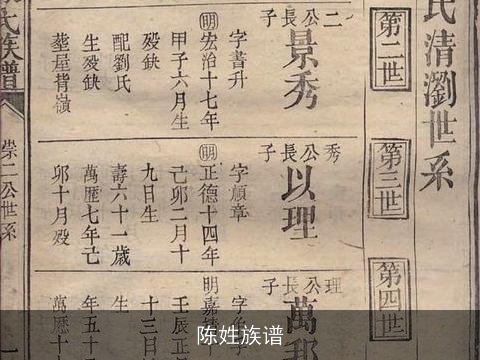 氏清瀏世系
第二世
二公長子
景秀
字書升
明宏治十七年
甲子六月生
歿缺
配劉氏
生歿缺
葬屋背嶺
第三世
秀公長子
以理
字章
明正德十四年
己卯二月十
九日生
壽六十一歲
萬歷七年己
卯十月歿
第四世
理公長子
萬邦
字
明嘉
壬辰正
十三日
生
年五十
萬歷十
氏族譜
崇二公世系
陈姓族谱